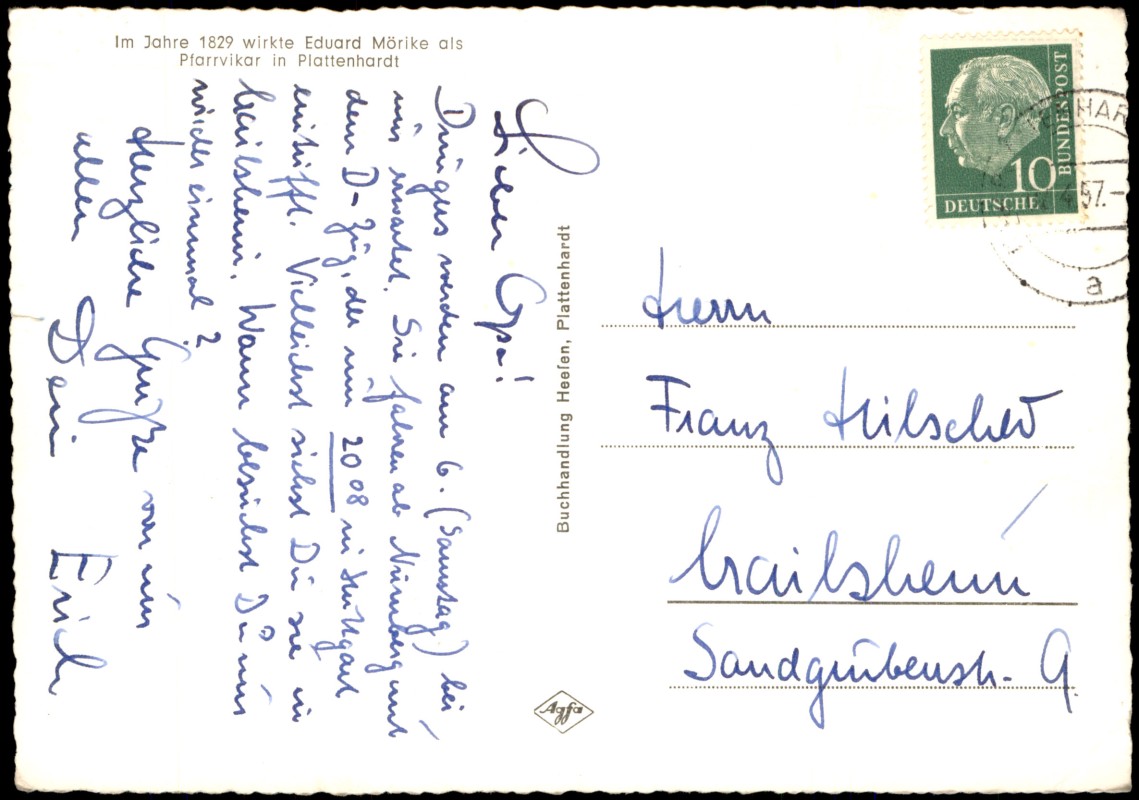 Im Jahre 1829 wirkte Eduard Mörike als
Pfarrvikar in Plattenhardt
Lieber Opa!
werden am 6. (Samstag) bei
uns erwartet. Sie fahren ab Nürnberg mit
dem D-Zug, der um 2008 in Stuttgart
eintrifft. Vielleicht siehst Du sie in
Crailsheim. Wann besuchst Du uns
wieder einmal?
Herzliche Grüße von uns
allen Dein Erich
Buchhandlung Heefen, Plattenhardt
Agfa
DEUTSCHE
BUNDESPOST
10
HAR
4.57.-
a
Herrn
Franz Hilscher
Crailsheim
Sandgrubenstr. 9